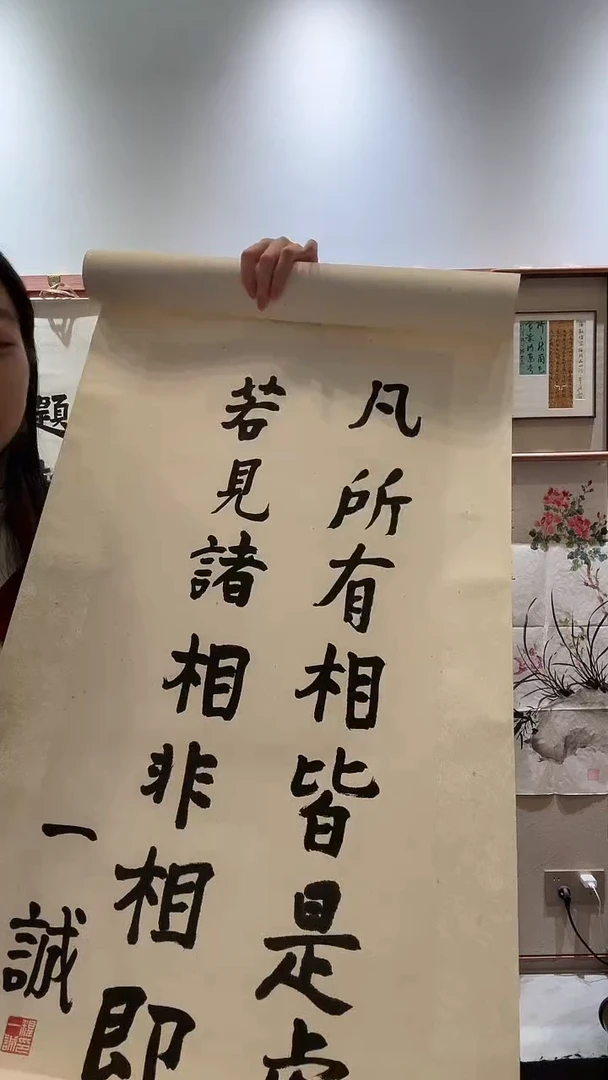 凡所有相皆是
若見諸相非相即
一誠
題